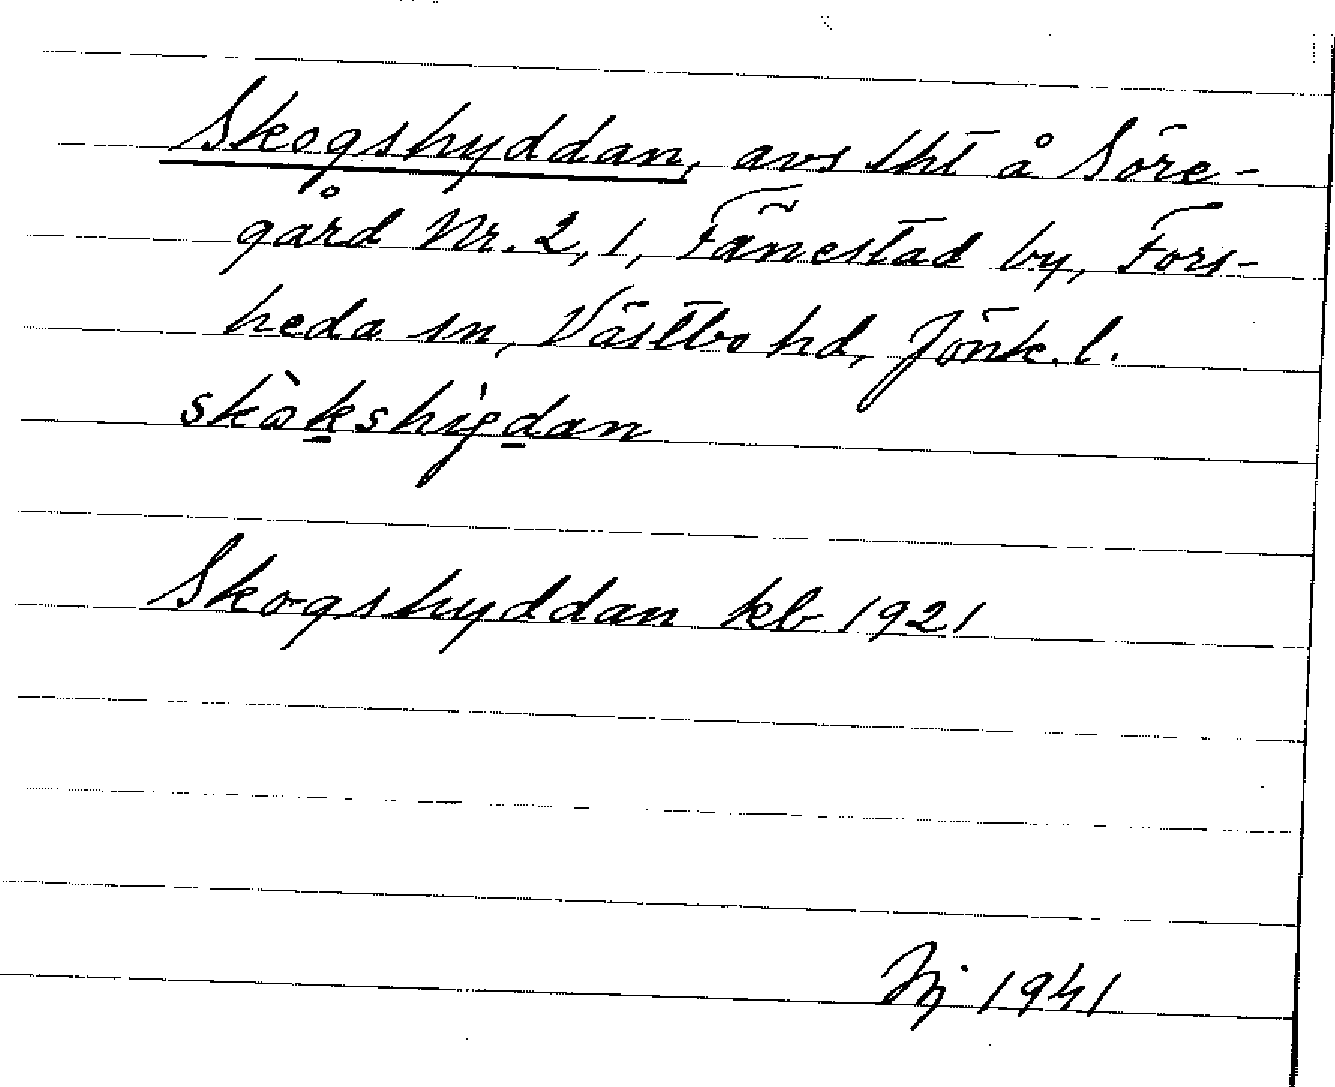 Skogshyddan, avs lht å Söre-
gård Nr. 2,1, Fänestad by, Fors-
heda sn, Västbo hd, Jönk. l.
Skogshyddan kb 1921
1941